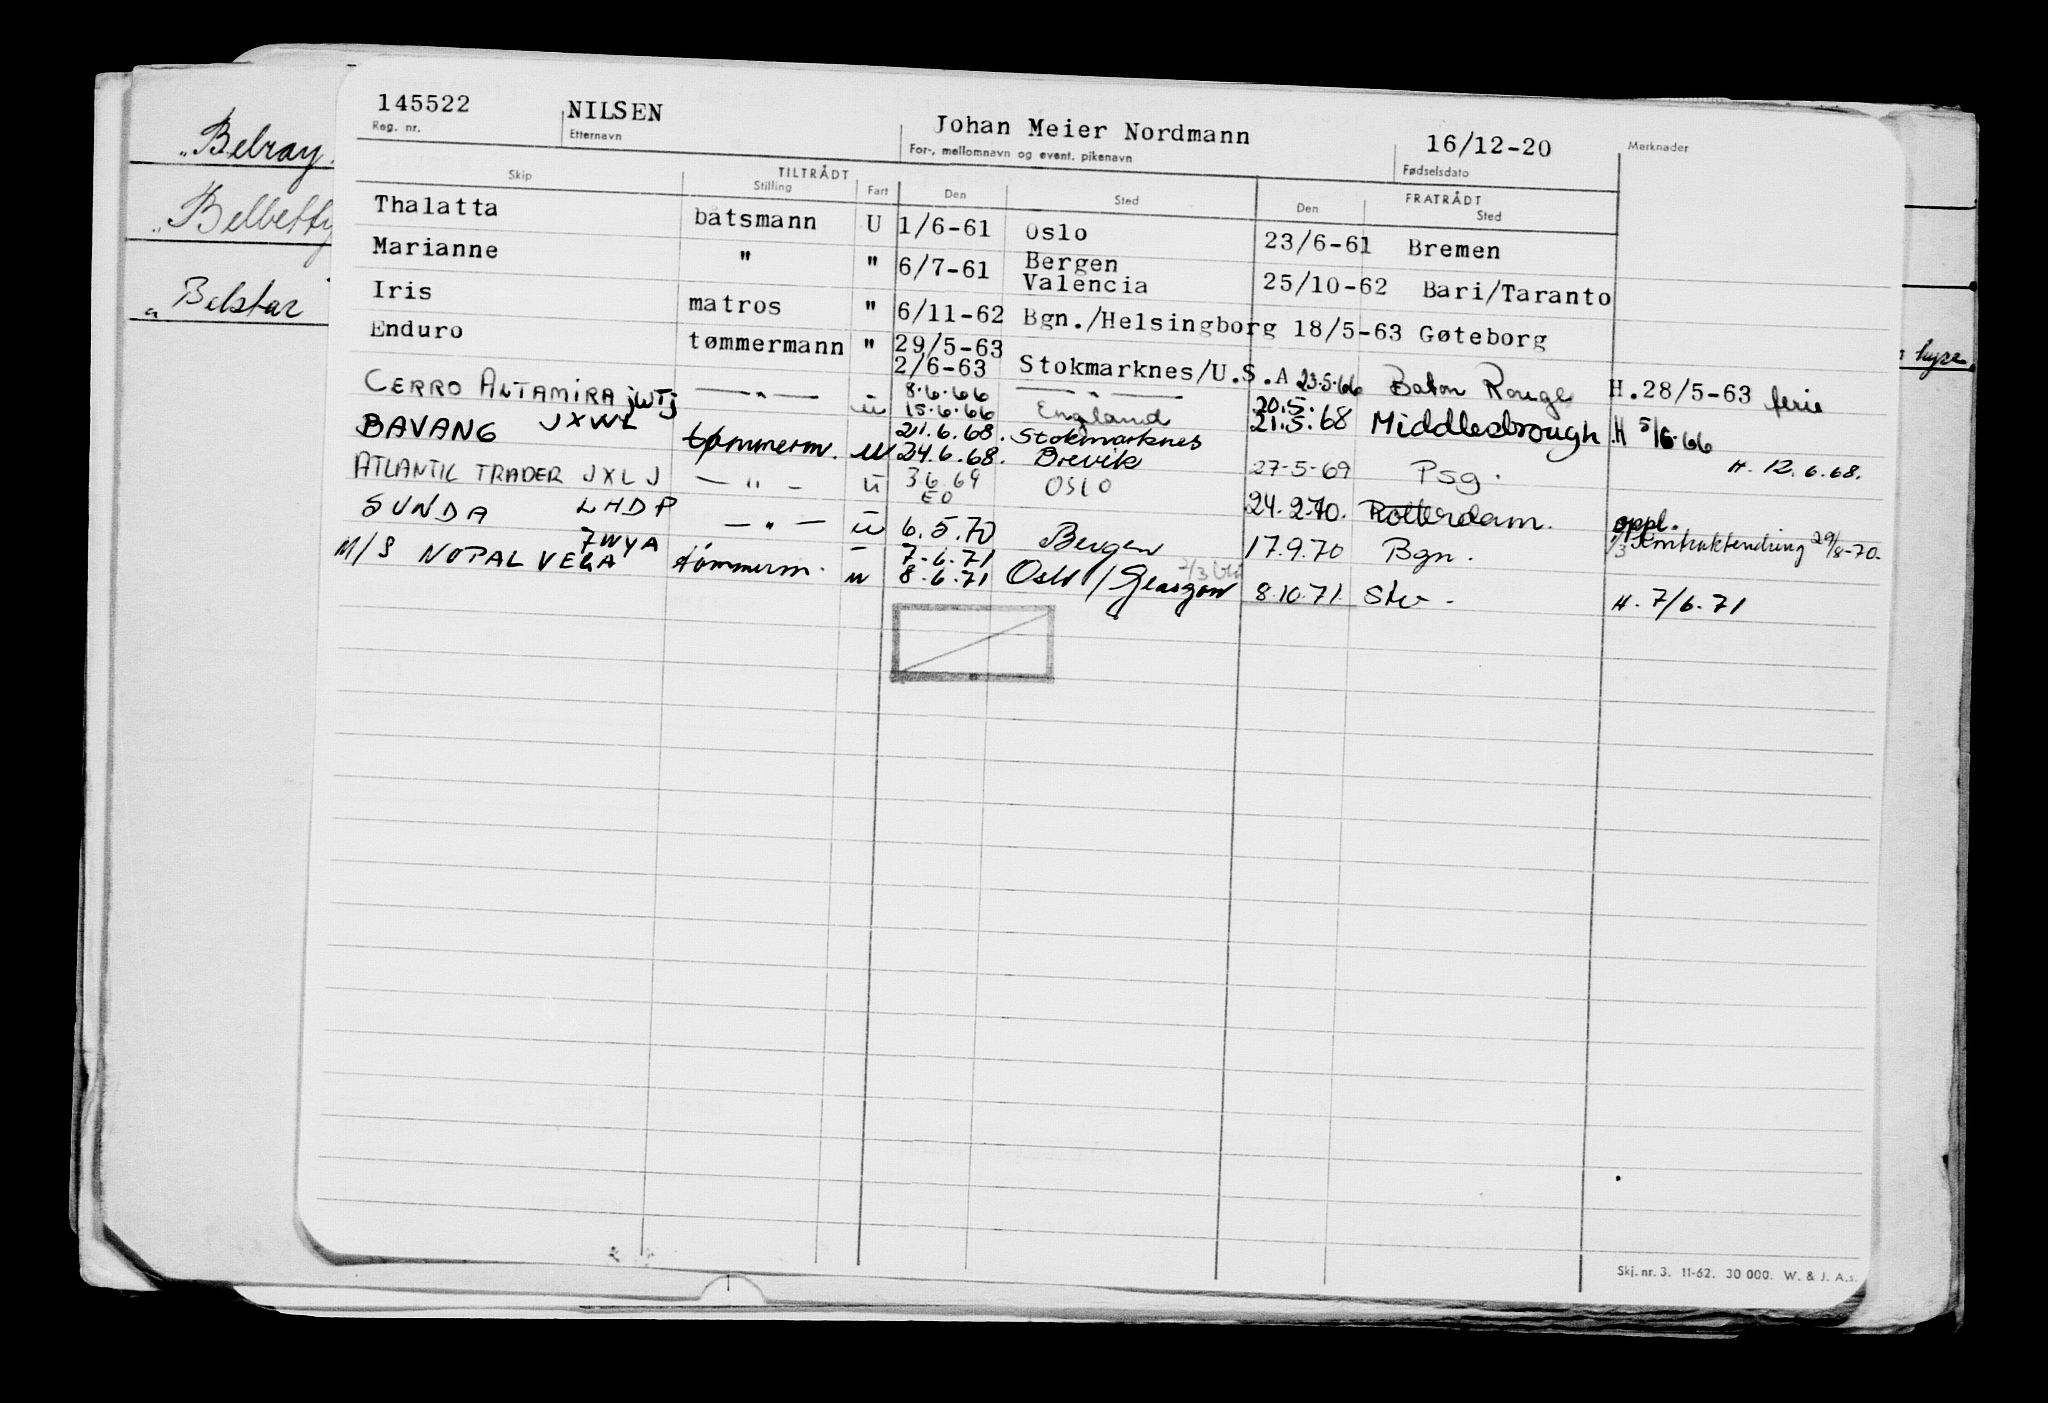 145522 NILSEN Johan Meier Nordmann 16/12-20 Merknader
Reg. nr. Etternavn For-, mellomnavn og event. pikenavn Fødselsdato
TILTRÅDT FRATRÅDT
Skip Stilling Fart Den Sted Den Sted
Thalatta båtsmann U 1/6-61 Oslo 23/6-61 Bremen
Marianne " " 6/7-61 Bergen Valencia 25/10-62 Bari/Taranto
Iris matros " 6/11-62 Bgn./Helsingborg 18/5-63 Gøteborg
Enduro tømmermann " 29/5-63 2/6-63 Stokmarknes/U.S.A 23.5.66 Baton Rouge H.28/5-63 ferie
CERRO ALTAMIRA JWTJ — " — u 8.6.66 15.6.66 — " — England 20.5. 21.5.68 Middlesbrough H 5/6.66
BAVANG JXWL tømmerm. u 21.6.68. 24.6.68. Stokmarknes Brevik 27-5-69 Psg. H. 12.6.68.
ATLANTIC TRADER JXLJ — " — u 3.6.69 EO OSLO 24.2.70. Rotterdam. oppl.
SUNDA LHDP — " — u 6.5.70 Bergen 17.9.70 Bgn. Kontraktendring 29/8-70.
M/S NOPAL VEGA 7WYA tømmerm. u 7.6.71 8.6.71 Oslo/Glasgow 8.10.71. Stv. H. 7/6.71
"Belray"
"Belbetty
"Belstar
hyre
Skj. nr. 3. 11-62. 30 000. W. & J. A.s.